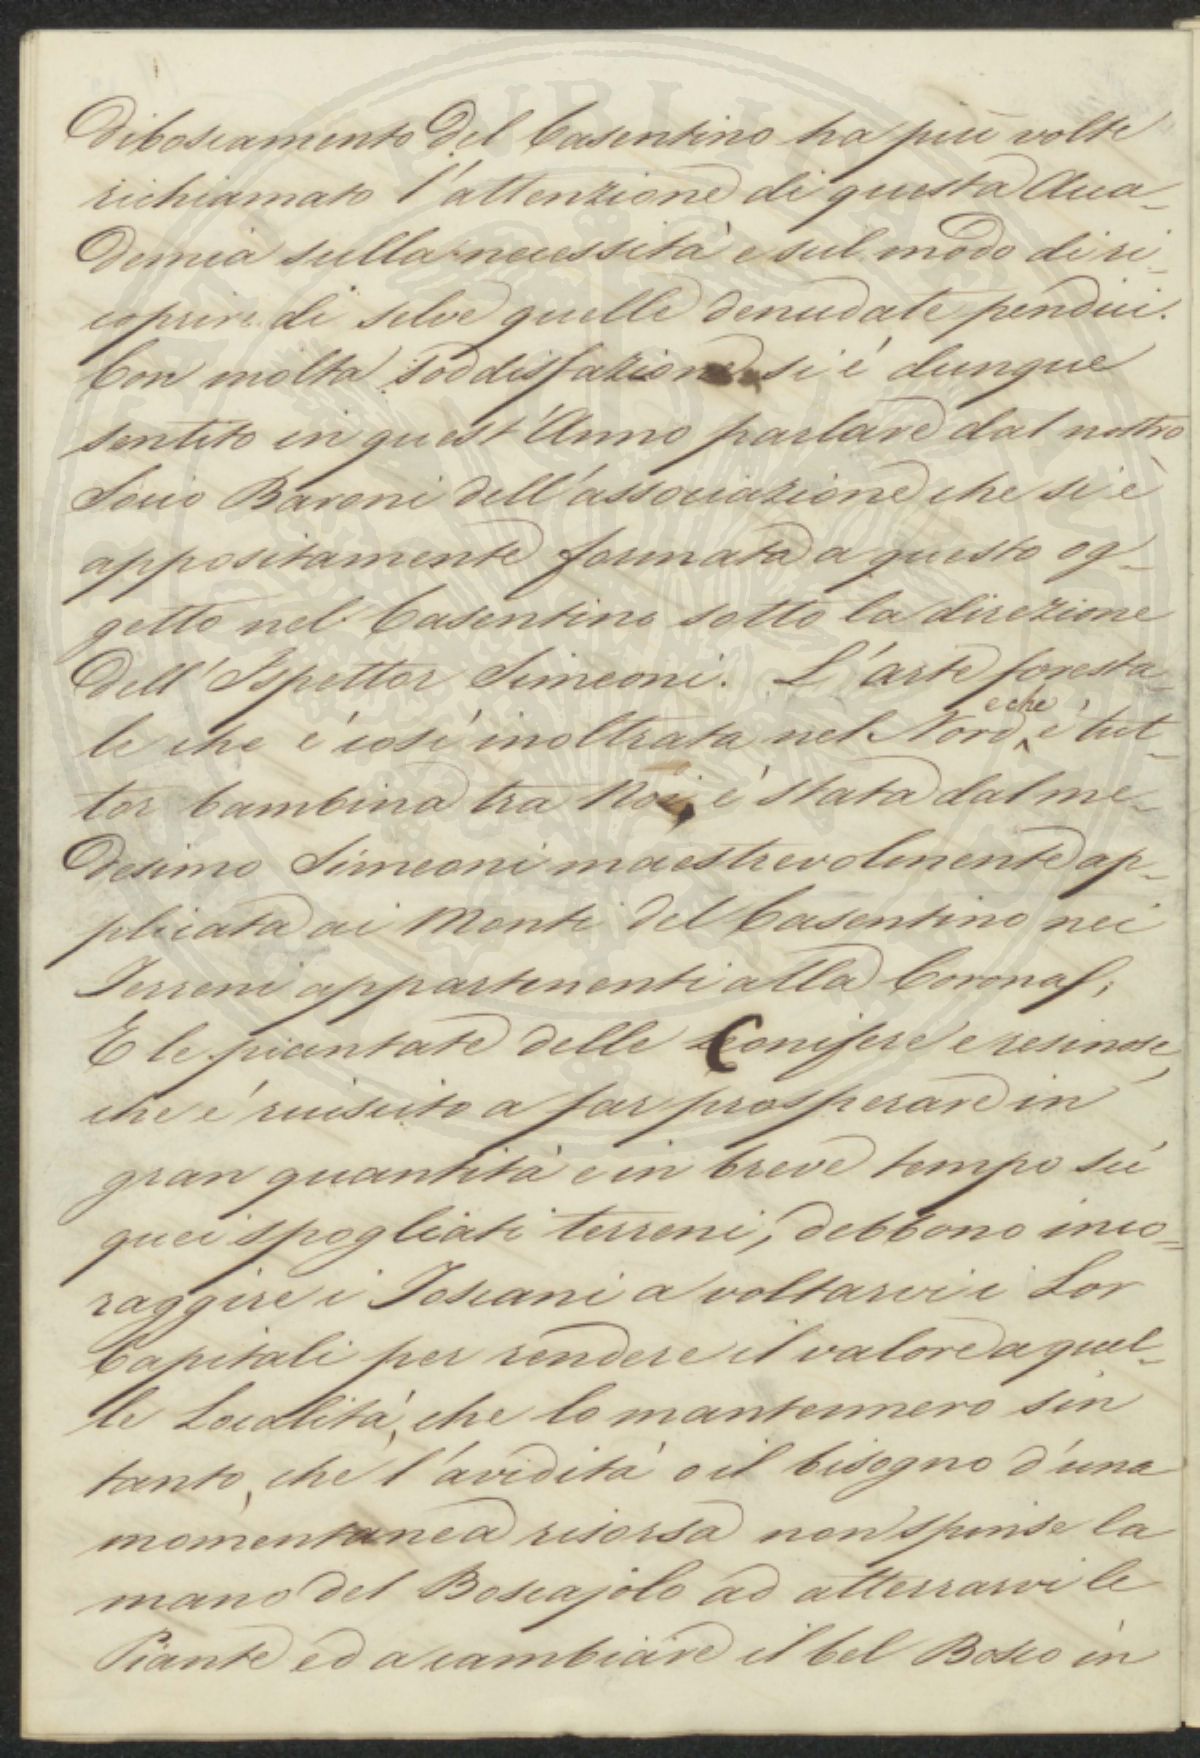 diboscamento del Casentino ha più volte
richiamato l'attenzione di questa Acca-
demia sulla necessità e sul modo di ri-
coprire di selve quelle denudate pendici.
Con molta soddisfazione si é dunque
sentito in quest'Anno parlare dal nostro
Socio Baroni dell'associazione che si è
appositamente formata a questo og-
getto nel Casentino sotto la direzione
dell'Ispettor Simeoni. L'arte foresta-
le che é così inoltrata nel Nord, e che é tut-
tor bambina tra Noi, é stata dal me-
desimo Simeoni maestrevolmente ap-
plicata ai Monti del Casentino nei
Terreni appartenenti alla Corona;
E le piantate delle Conifere e resinose,
che é riuscito a far prosperare in
gran quantità e in breve tempo sù
quei spogliati terreni, debbono inco-
raggire i Toscani a voltarvi i Lor
Capitali per rendere il valore a quel-
le Località, che lo mantennero sin
tanto, che l'avidità o il bisogno d'una
momentanea risorsa non spinse la
mano del Boscajolo ad atterrarvi le
Piante ed a cambiare il bel Bosco in